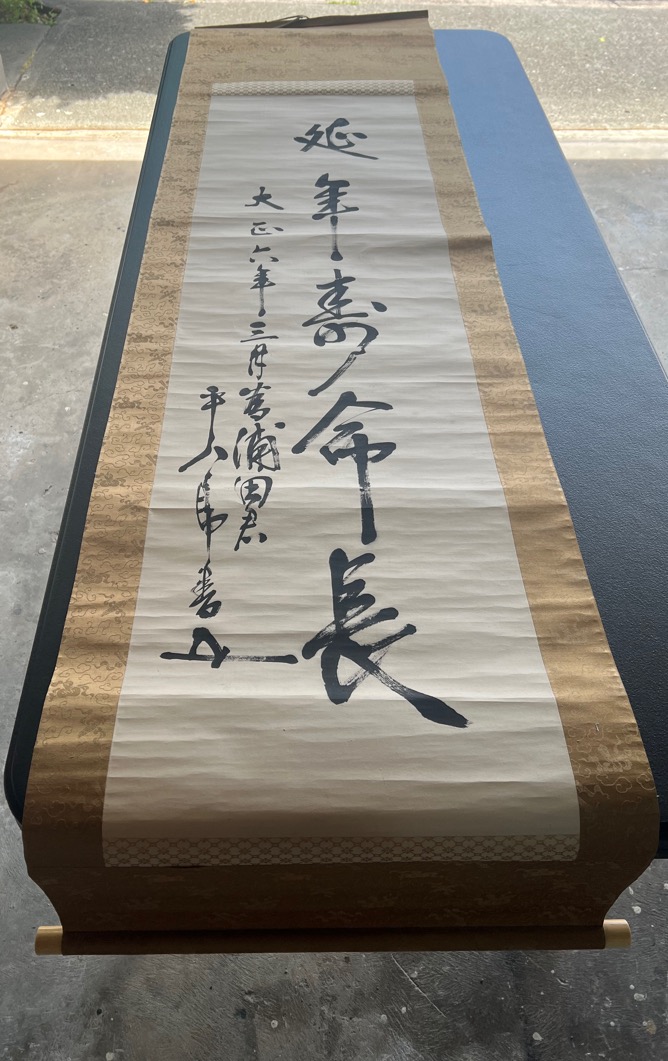 延年寿命長
大正六年三月為浦田君
平八郎書